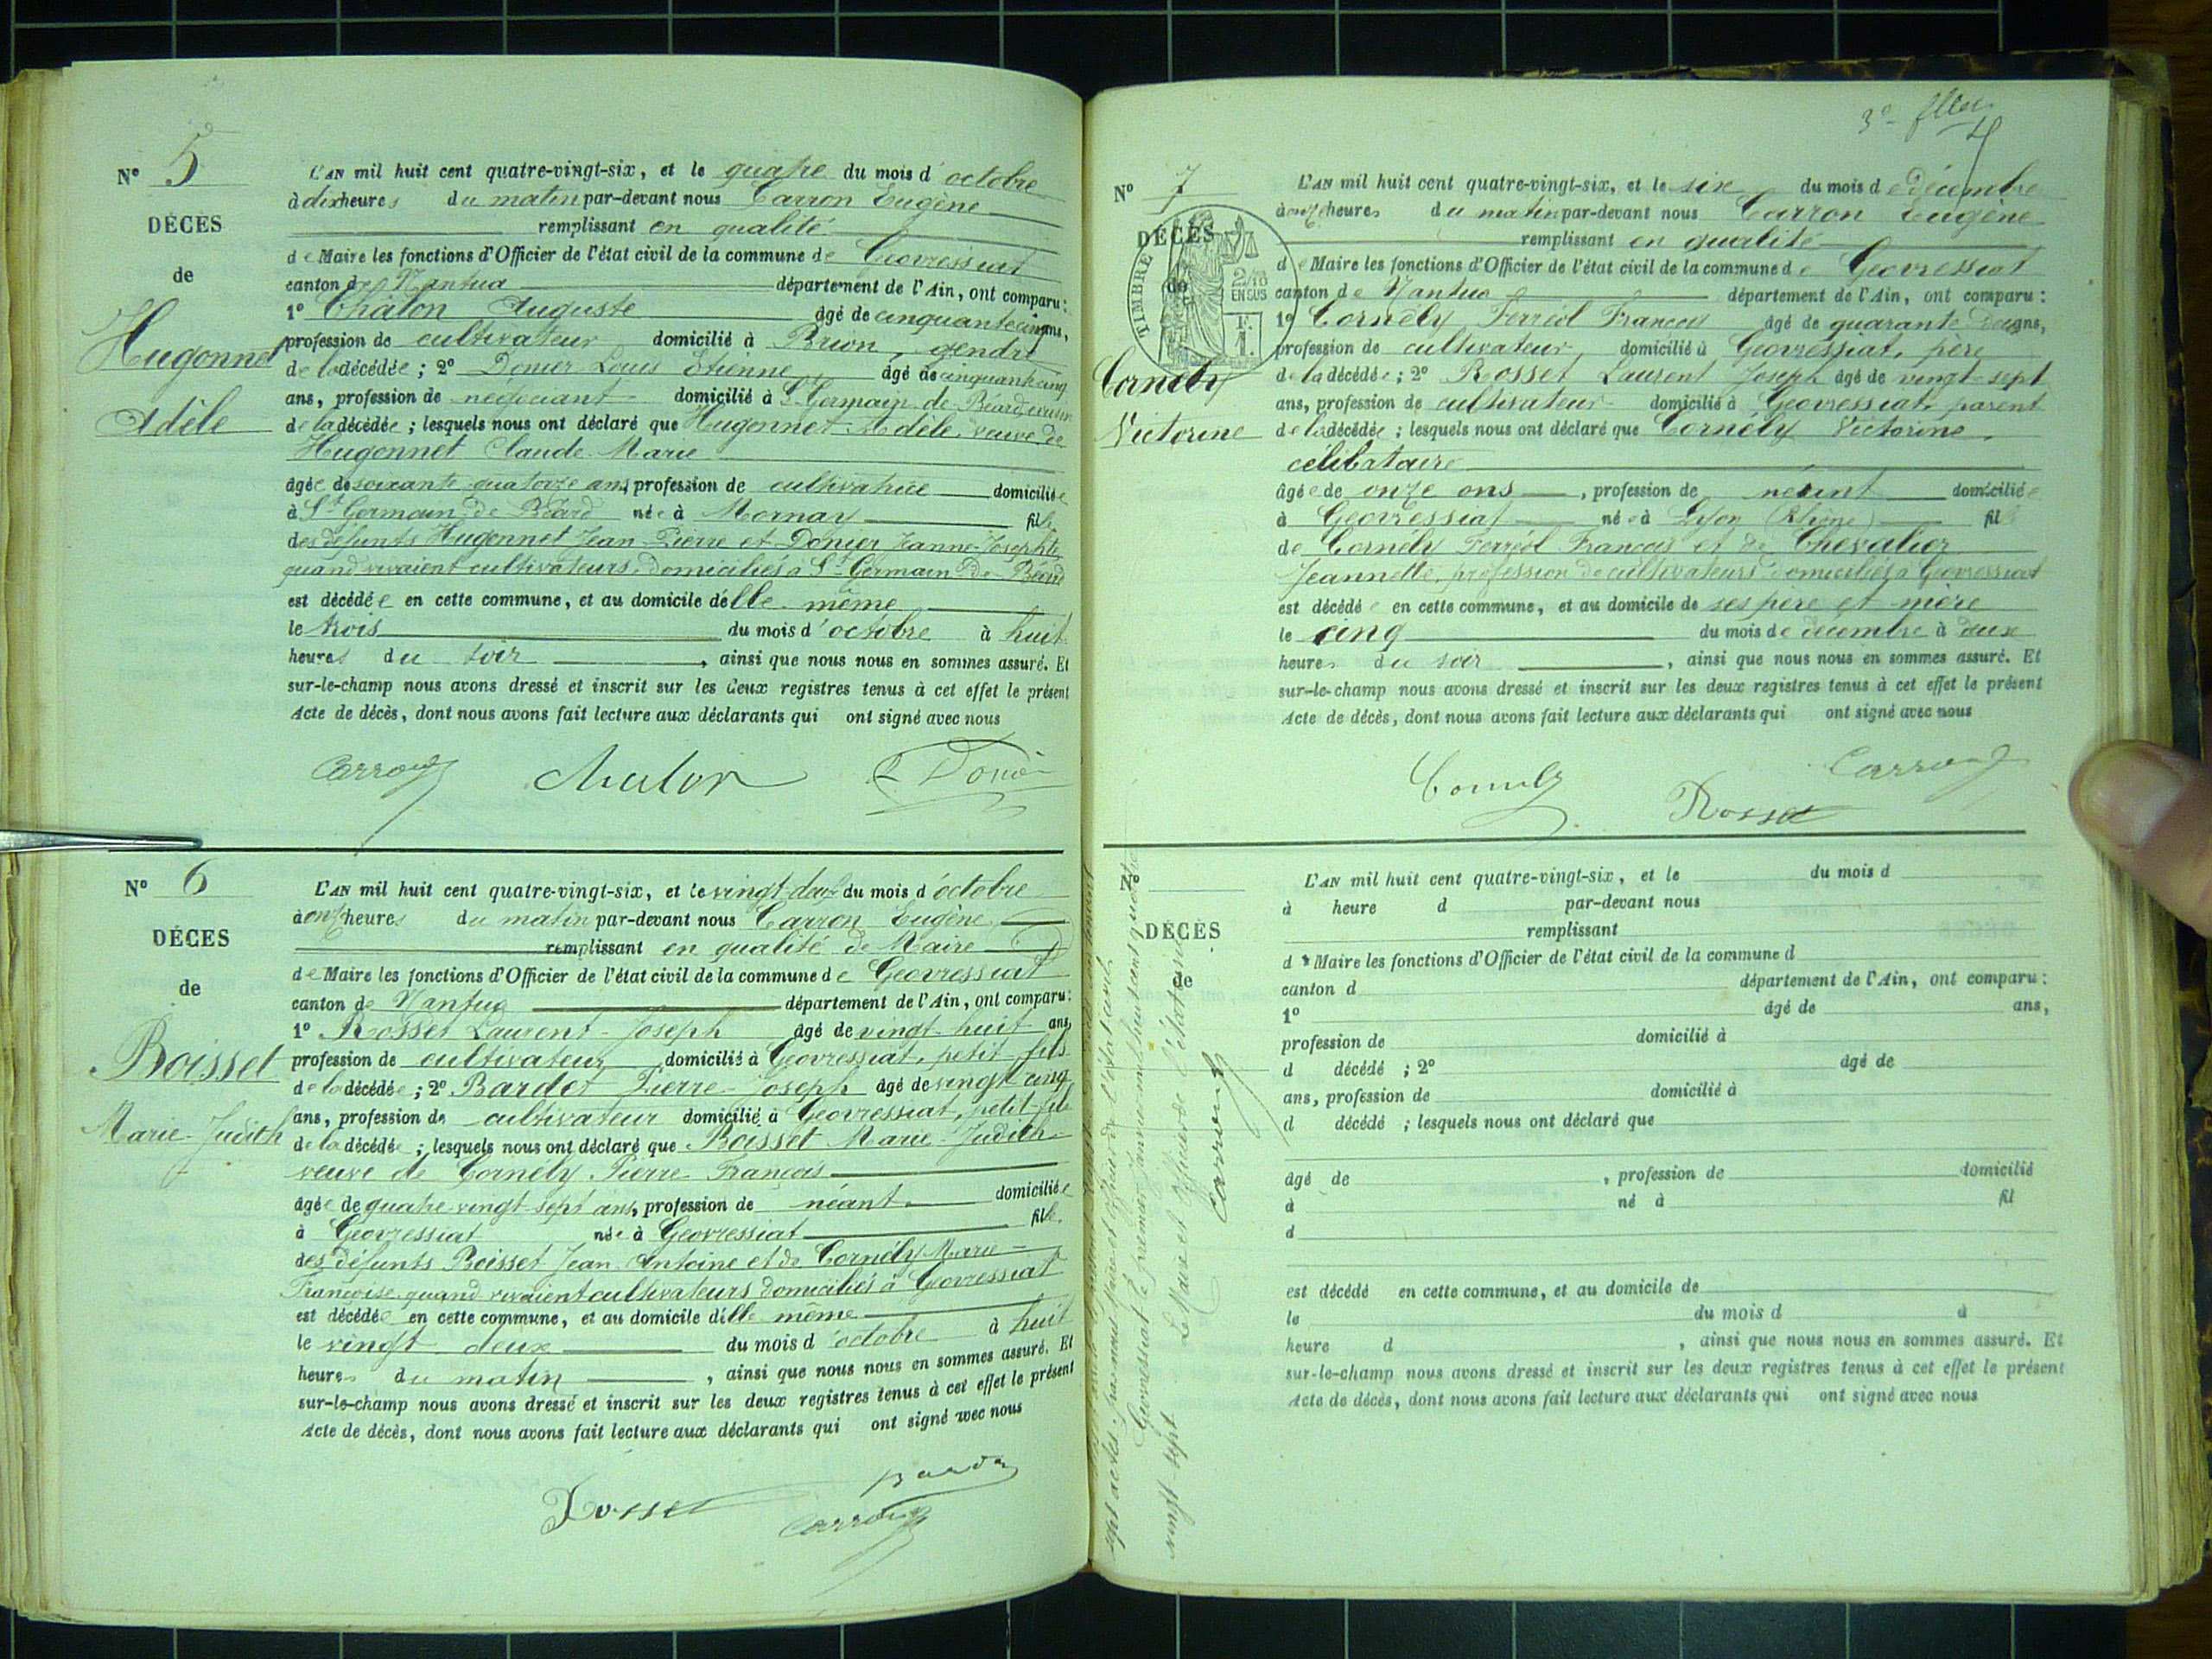 N° 5
DÉCÈS
de
Hugonnet
Adèle
L'AN mil huit cent quatre-vingt-six, et le quatre du mois d'octobre
à dix heures du matin par-devant nous Carron Eugène
remplissant en qualité
de Maire les fonctions d'Officier de l'état civil de la commune de Geovressiat
canton de Nantua département de l'Ain, ont comparu :
1° Châlon Auguste âgé de cinquante cinq ans,
profession de cultivateur domicilié à Brion, gendre
de la décédée ; 2° Donier Louis Etienne âgé de cinquante cinq
ans, profession de négociant domicilié à St Germain de Béard
de la décédée ; lesquels nous ont déclaré que Hugonnet Adèle veuve de
Hugonnet Claude Marie
âgée de soixante quatorze ans, profession de cultivatrice domiciliée
à St Germain de Béard née à Mornay fille
des défunts Hugonnet Jean Pierre et Donier Jeanne Josephte
quand vivaient cultivateurs domiciliés à St Germain de Béard
est décédée en cette commune, et au domicile d'elle même
le trois du mois d'octobre à huit
heures du soir, ainsi que nous nous en sommes assuré. Et
sur-le-champ nous avons dressé et inscrit sur les deux registres tenus à cet effet le présent
Acte de décès, dont nous avons fait lecture aux déclarants qui ont signé avec nous
Carron Chalon Donier
N° 6
DÉCÈS
de
Boisset
Marie-Judith
L'AN mil huit cent quatre-vingt-six, et le vingt-deux du mois d'octobre
à onze heures du matin par-devant nous Carron Eugène
remplissant en qualité de Maire
de Maire les fonctions d'Officier de l'état civil de la commune de Geovressiat
canton de Nantua département de l'Ain, ont comparu :
1° Rosset Laurent-Joseph âgé de vingt-huit ans,
profession de cultivateur domicilié à Geovressiat, petit fils
de la décédée ; 2° Bardet Pierre-Joseph âgé de vingt cinq
ans, profession de cultivateur domicilié à Geovressiat, petit-fils
de la décédée ; lesquels nous ont déclaré que Boisset Marie-Judith
veuve de Cornély Pierre François
âgée de quatre vingt sept ans, profession de néant domiciliée
à Geovressiat née à Geovressiat fille
des défunts Boisset Jean Antoine et de Cornély Marie
Françoise quand vivaient cultivateurs domiciliés à Geovressiat
est décédée en cette commune, et au domicile d'elle même
le vingt deux du mois d'octobre à huit
heures du matin, ainsi que nous nous en sommes assuré. Et
sur-le-champ nous avons dressé et inscrit sur les deux registres tenus à cet effet le présent
Acte de décès, dont nous avons fait lecture aux déclarants qui ont signé avec nous
Rosset Bardet
Carron
3e
N° 7
DÉCÈS
de
TIMBRE
2/10 EN SUS
Cornély
Victorine
L'AN mil huit cent quatre-vingt-six, et le six du mois de décembre
à onze heures du matin par-devant nous Carron Eugène
remplissant en qualité
de Maire les fonctions d'Officier de l'état civil de la commune de Geovressiat
canton de Nantua département de l'Ain, ont comparu :
1° Cornély Ferréol François âgé de quarante deux ans,
profession de cultivateur domicilié à Geovressiat, père
de la décédée ; 2° Rosset Laurent Joseph âgé de vingt-sept
ans, profession de cultivateur domicilié à Geovressiat, parent
de la décédée ; lesquels nous ont déclaré que Cornély Victorine,
célibataire
âgée de onze ans, profession de néant domiciliée
à Geovressiat née à Lyon (Rhône) fille
de Cornély Ferréol François et de Chevalier
Jeannette, profession de cultivateurs domiciliés à Geovressiat
est décédée en cette commune, et au domicile de ses père et mère
le cinq du mois de décembre à deux
heures du soir, ainsi que nous nous en sommes assuré. Et
sur-le-champ nous avons dressé et inscrit sur les deux registres tenus à cet effet le présent
Acte de décès, dont nous avons fait lecture aux déclarants qui ont signé avec nous
Cornely Rosset Carron
DÉCÈS
de
L'AN mil huit cent quatre-vingt-six, et le du mois d
à heure d par-devant nous
remplissant
d Maire les fonctions d'Officier de l'état civil de la commune d
canton d département de l'Ain, ont comparu :
1° âgé de ans,
profession de domicilié à
d décédé ; 2° âgé de
ans, profession de domicilié à
d décédé ; lesquels nous ont déclaré que
âgé de , profession de domicilié
à né à fil
d
est décédé en cette commune, et au domicile de
le du mois d à
heure d , ainsi que nous nous en sommes assuré. Et
sur-le-champ nous avons dressé et inscrit sur les deux registres tenus à cet effet le présent
Acte de décès, dont nous avons fait lecture aux déclarants qui ont signé avec nous
sept actes, par nous Maire et Officier de l'état civil.
Geovressiat le premier Janvier mil huit cent quatre
vingt-sept Le Maire et Officier de l'état civil
Carron